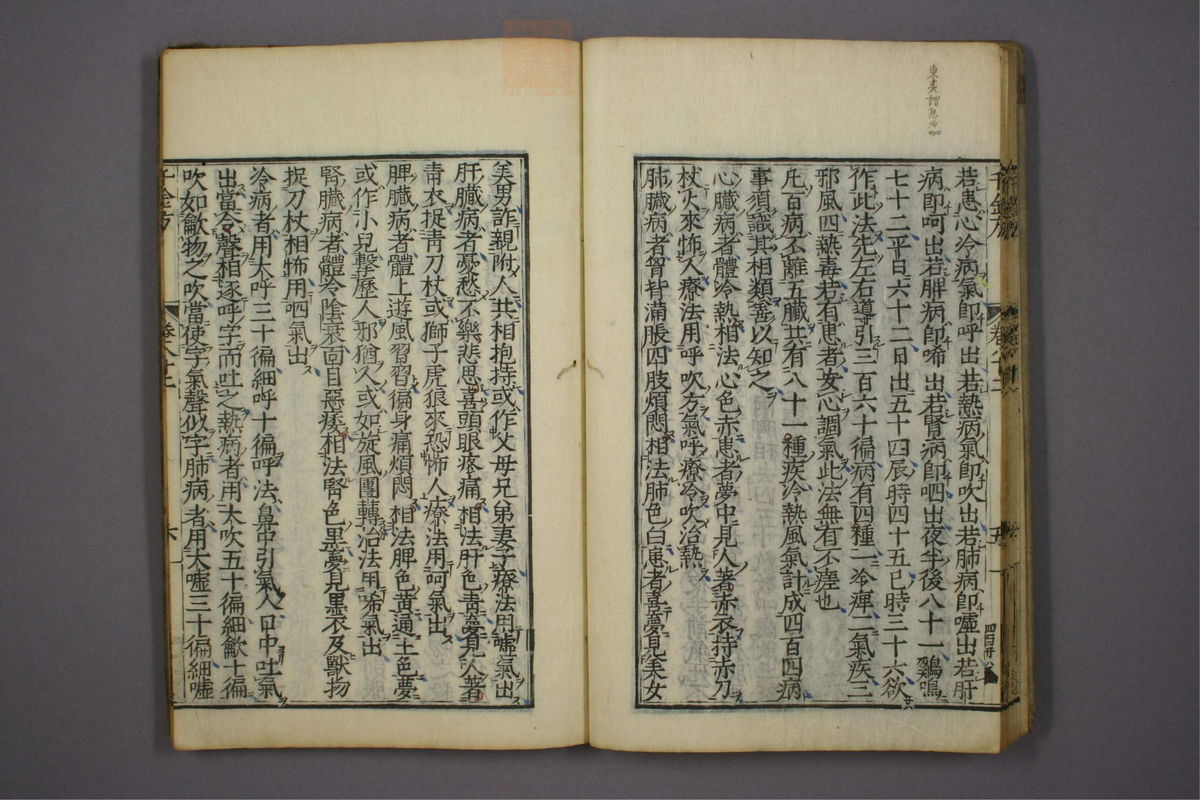 東夷
若患心冷病氣即呼出若熱病氣即吹出若肺病即噓出若肝
病即呵出若脾病即唏出若腎病即呬出夜半後八十一鷄鳴
七十二平旦六十三日出五十四辰時四十五巳時三十六欲
作此法先左右導引三百六十徧病有四種一冷痹二氣疾三
邪風四熱毒若有患者安心調氣此法無有不瘥也
凡百病不離五臟共有八十一種疾冷熱風氣計成四百四病
事須識其相類善以知之
心臟病者體冷熱相法心色赤患者夢中見人著赤衣持赤刀
杖火來怖人療法用呼吹方氣呼療冷吹治熱
肺臟病者胷背滿脹四肢煩悶相法肺色白患者喜夢見美女
千金方
卷八十二
五
美男詐親附人共相抱持或作父母兄弟妻子療法用噓氣出
肝臟病者憂愁不樂悲思喜頭眼疼痛相法肝色青夢見人著
青衣捉青刀杖或獅子虎狼來恐怖人療法用呵氣出
脾臟病者體上遊風習習徧身痛煩悶相法脾色黃通土色夢
或作小兒擊歷人邪猶人或如旋風團轉治法用唏氣出
腎臟病者體冷陰衰面目惡痿相法腎色黑夢見黑衣及獸物
捉刀杖相怖用呬氣出
冷病者用大呼三十徧細呼十徧呼法鼻中引氣入口中吐氣
出當令聲相逐呼字而吐之熱病者用大吹五十徧細歙十徧
吹如歙物之吹當使字氣聲似字肺病者用大噓三十徧細噓
千金方
卷八十二
六